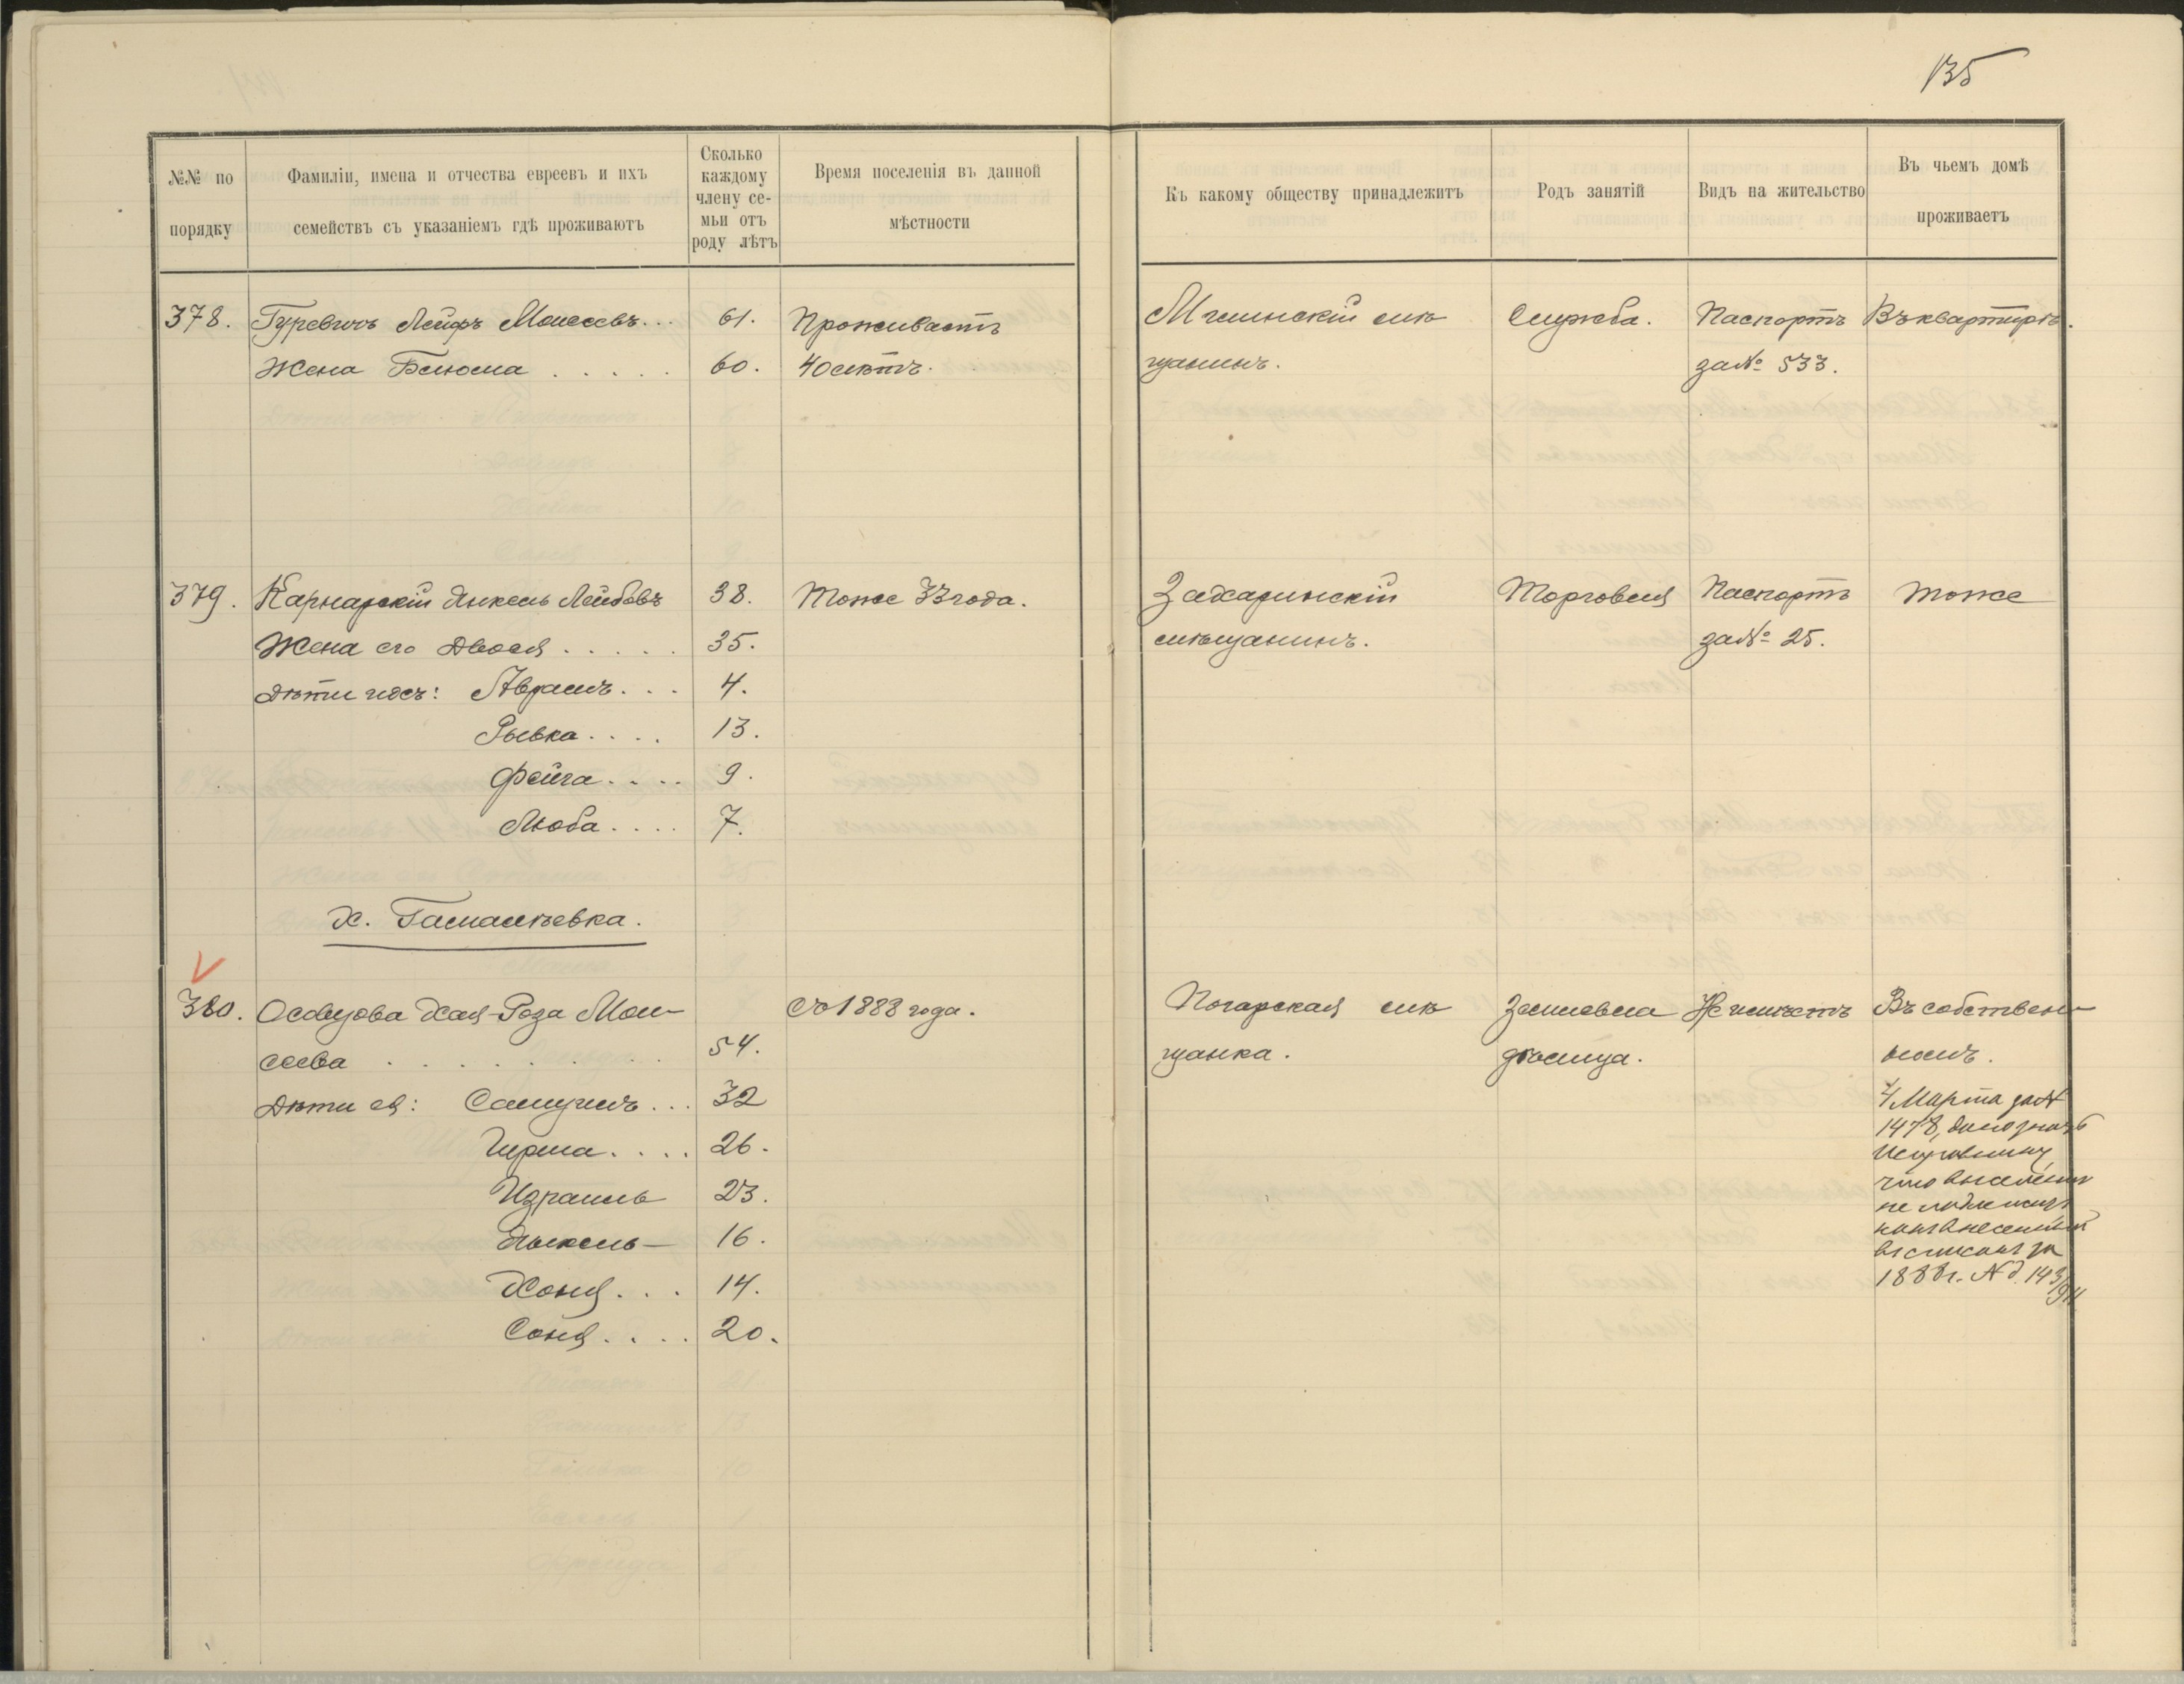 135
№№ по порядку
Фамиліи, имена и отчества евреевъ и ихъ семействъ съ указаніемъ гдѣ проживаютъ
Сколько каждому члену семьи отъ роду лѣтъ
Время поселенія въ данной мѣстности
Къ какому обществу принадлежитъ
Родъ занятій
Видъ на жительство
Въ чьемъ домѣ проживаетъ
378. Гуревичъ Лейфъ Моисеевъ... 61. Проживаетъ Мглинскій мѣ Служба. Паспортъ Въ квартирѣ.
Жена Блюма . . . . . 60. 40 лѣтъ. щанинъ. за № 533.
379. Карнарскій Янкель Лейбовъ 38. Тоже 33 года. Захаринскій Торговля Паспортъ тоже
Жена его Двося . . . . . 35. мѣщанинъ. за № 25.
Дѣти ихъ: Абрамъ. . . 4.
Рывка. . . . 13.
Фейга. . . . 9.
Люба. . . . 7.
Х. Гамалѣевка.
380. Хая-Роза Мои- Съ 1888 года. Погарская мѣ Землевла Не имѣетъ Въ собствен-
сеева . . . . . . 54. щанка. дѣлица. номъ.
Дѣти ея: Самуилъ... 32
Гирша. . . . 26.
Израиль 23.
Янкель- 16.
Хоня. . . 14.
Соня. . . . 20.
4 Марта за №
1478, дано знать
Исправнику,
что выселенію
не подлежитъ
какъ внесенный
въ списокъ за
1888 г. № д. 143/911